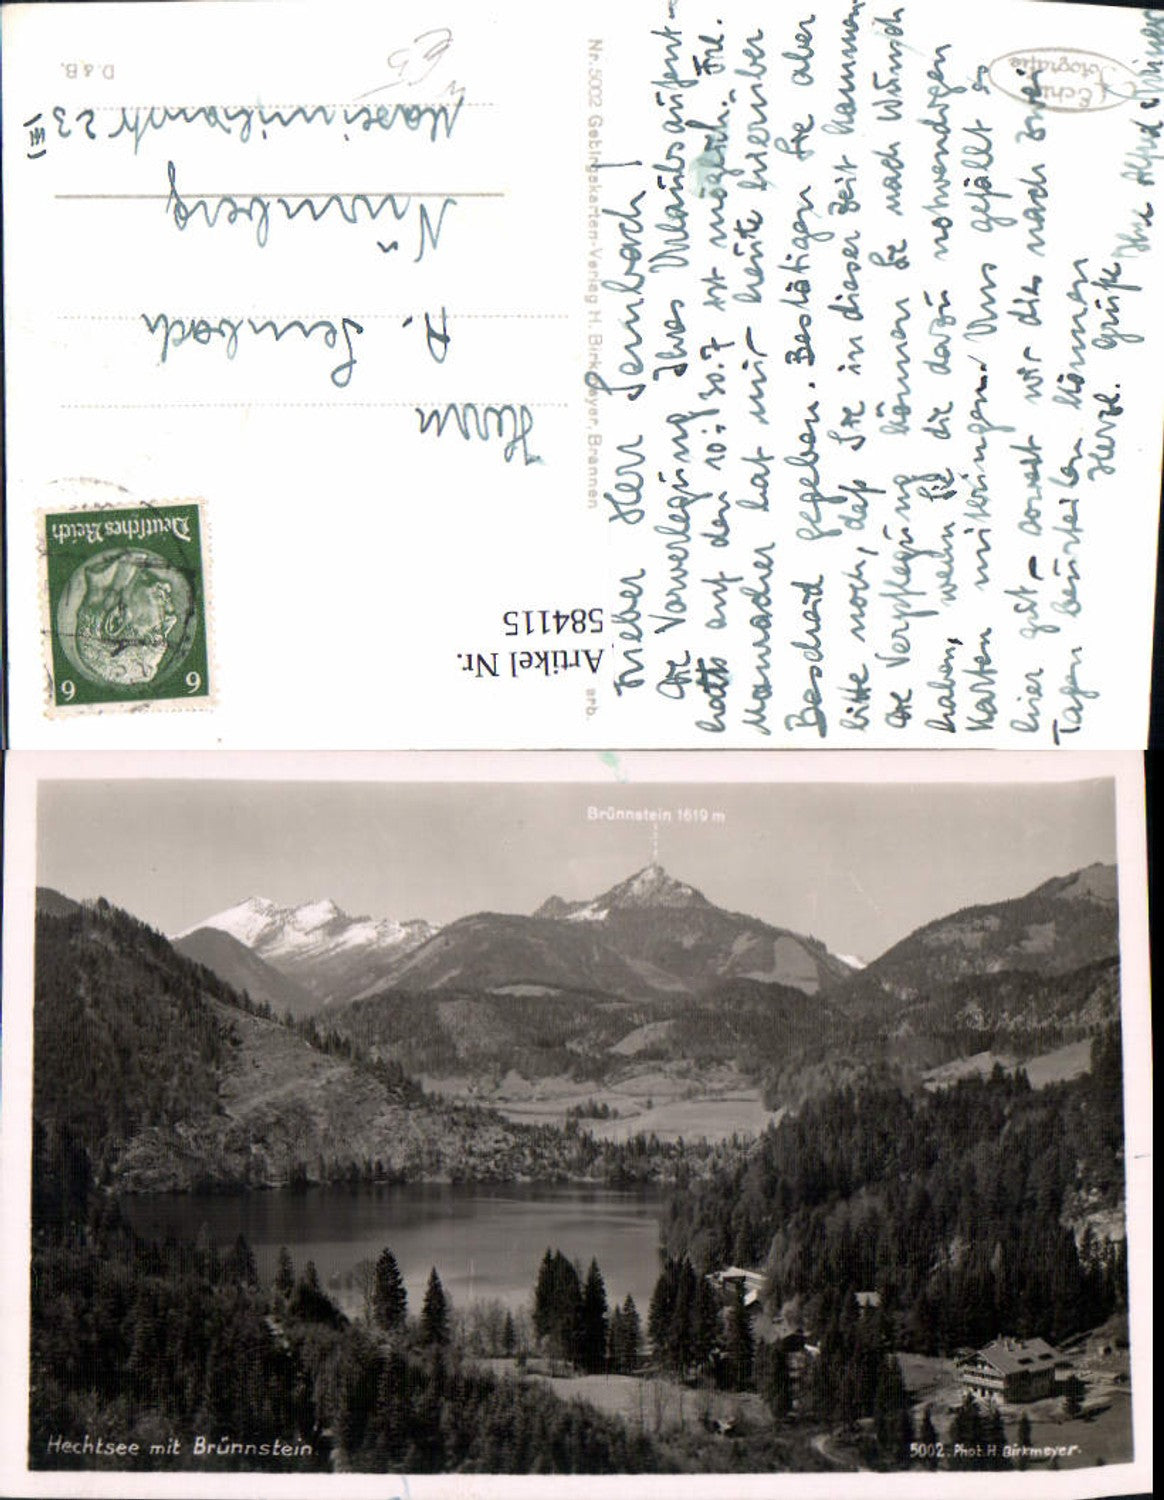 Lieber Herr Sembach!
Die Vorverlegung Ihres Urlaubsaufent-
halts auf den 10. - 30.7 ist möglich. Frl.
hat mir heute hierüber
Bescheid gegeben. Bestätigen Sie aber
bitte noch, daß Sie in dieser Zeit kommen
Die Verpflegung können Sie nach Wunsch
haben, wenn Sie die dazu notwendigen
Karten mitbringen. Uns gefällt es
hier gut - soweit wir dies nach zwei
Tagen beurteilen können
Herzl. Grüße
Ihre Alfred
Echte
Fotografie
Nr. 5002 Gebirgskarten-Verlag H. Birkmeyer, Brannen
arb.
D. & B.
Herrn
A. Sembach
Nürnberg
Maximilianstr 23 III
Deutsches Reich
6 6
Artikel Nr.
584115
Brünnstein 1619 m
Hechtsee mit Brünnstein
5002. Phot. H. Birkmeyer.